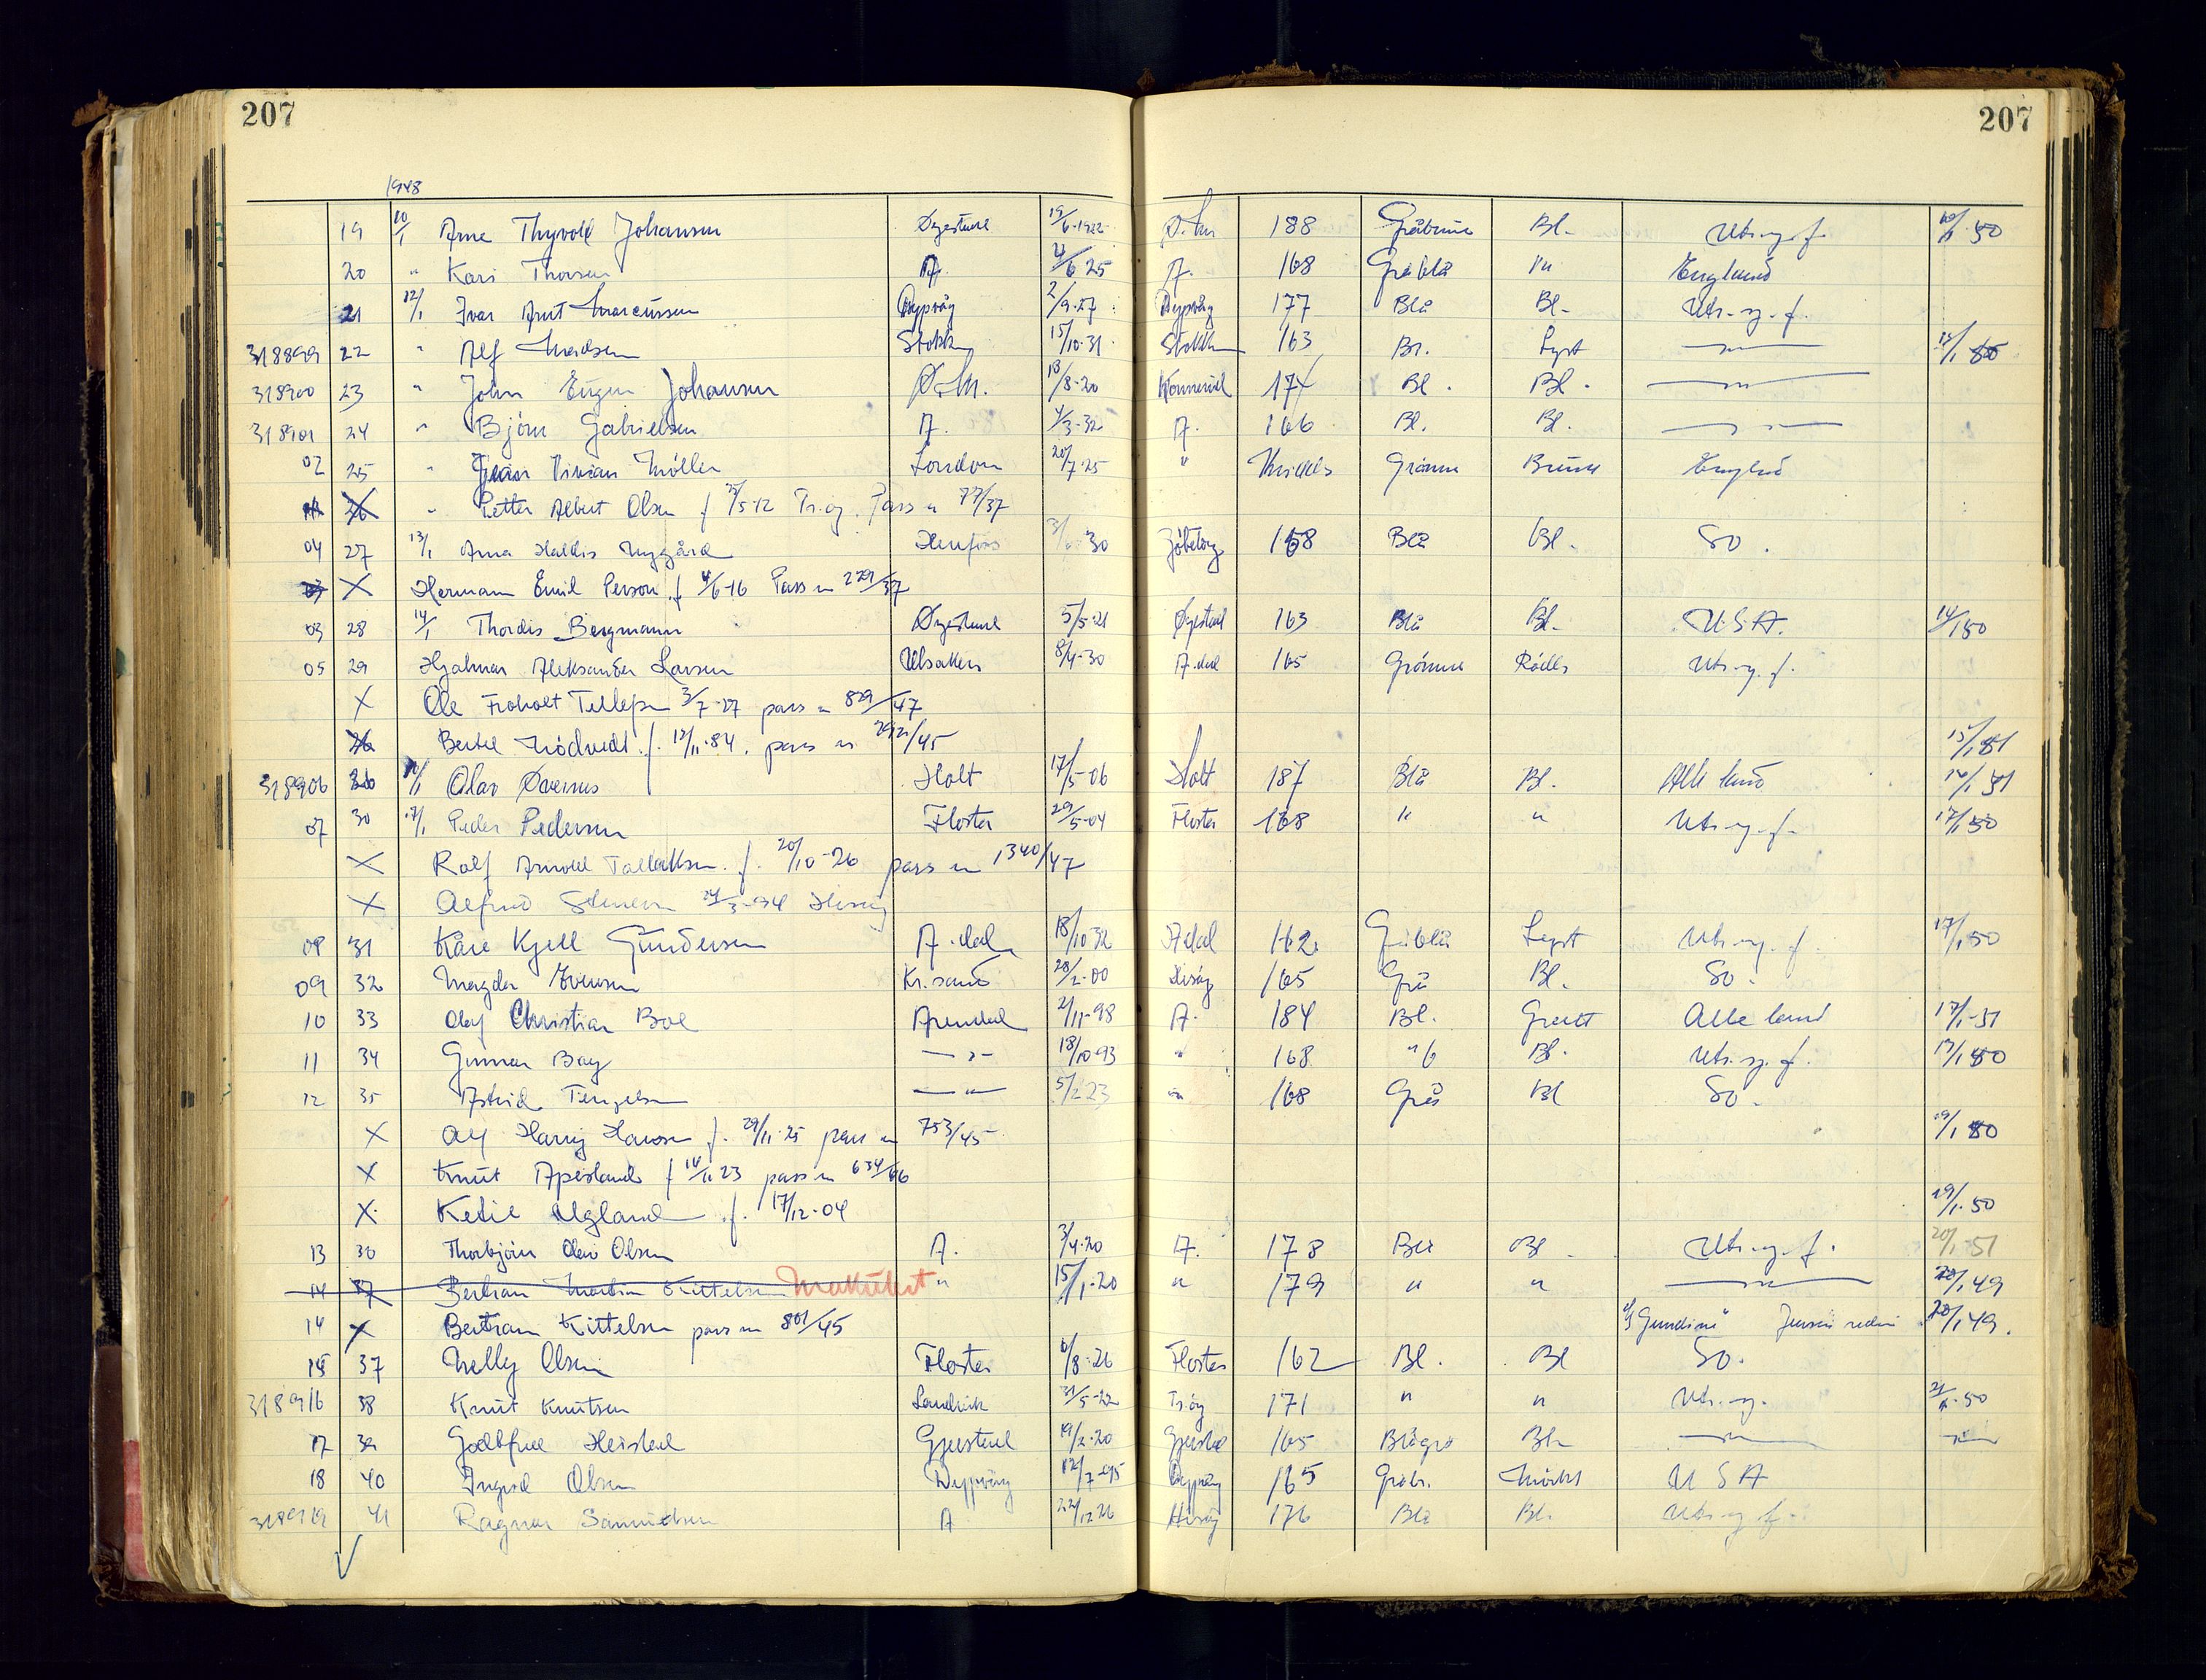 207 207
1948
19 10/1 Arne Thyvold Johansen Øyestad 19/6-1922 188 Gråbrune Bl. Uts. og f. 10/1-50
20 " Kari Thorsen A. 4/6 25 A. 168 Gråblå " England
21 12/1 Ivar Arnt Marcussen Dypvåg 2/9-27 Dypvåg 177 Blå Bl. Uts. og f.
318899 22 " Alf Madsen Stokken 15/10-31 Stokken 163 Br. Lyst — " — 12/1 50
318900 23 " John Eugen Johansen Ø.M. 13/8-20 174 Bl. Bl. — " —
318901 24 " Bjørn Gabrielsen A. 4/3-32 A. 166 Bl. Bl. — " —
02 25 " Jean Vivian Møller London 20/7-25 " Middels Grønne Brune England
26 " Petter Albert Olsen f 5-12 Tr.øy. Pass n 77/37
04 27 13/1 Anna Haldis Nygård 30 168 Blå Bl. So.
X Hermann Emil Person f. 4/6-16 Pass n 229/37
03 28 14/1 Thordis Bergmann Øyestad 5/5-21 Øyestad 163 Blå Bl. U.S.A. 14/1 50
05 29 Hjalmar Aleksander Larsen 8/4-30 A.dal 165 Grønne Rødls Uts. og f.
X Ole Froholt Tellefsen 3/7-27 pass n 829/47
26 Bertel Mødvedt f. 12/11-84. pass n /45 15/1 51
318906 26 Olav Ovenus Holt 17/5-06 Holt 187 Blå Bl. Alle land 16/1 51
07 30 17/1 Peder Pedersen Flosta 29/5-04 Flosta 168 " " Uts. og f. 17/1 50
X Rolf Arnold Tallaksen f. 20/10-26 pass n 1340/47
X Alfred Hisøy
08 31 Kåre Kjell Gundersen A.dal 18/10 32 A.dal 162 Gråblå Lyst Uts. og f. 17/1 50
09 32 Magda Evensen Kr.sand 28/2-00 Hisøy 165 Grå Bl. So.
10 33 Olaf Christian Boe Arendal 2/11-98 A. 184 Bl. Grått Alle land 17/1-51
11 34 Gunnar Bay — " — 18/10-93 " 168 " Bl. Uts. og f. 17/1 50
12 35 Astrid Tengelsen — " — 5/2 23 " 168 Grå Bl So.
X Alf Harry Hansen f. 29/11-25 pass n 753/45 19/1 50
X Knut Apesland f 23 pass n 634/46
X Ketil Ugland f. 17/12-04 19/1-50
13 36 Thorbjørn Olav Olsen A. 3/4-20 A. 178 Blå Bl. Uts. og f. 20/1-51
14 37 Bertram Martin Kittelsen Makulert " 15/1-20 " 179 " " — " — 20/1 49
14 X Bertram Kittelsen pass n 801/45 20/1 49.
15 37 Nelly Olsen Flosta 6/8-26 Flosta 162 Bl. Bl So.
318916 38 Knut Knutsen Landvik 31/5-22 Tr.øy 171 " " Uts. og. 21/1-50
17 39 Godtfred Heistad Gjerstad 19/2-20 Gjerstad 165 Blågrå Bl. — " — — " —
18 40 Ingrid Olsen Dypvåg 12/7-95 Dypvåg 165 Gråbr. Mørkt U S A
318919 41 Ragnar Samuelsen A 22/12 26 Hisøy 176 Blå Bl. Uts. og f.